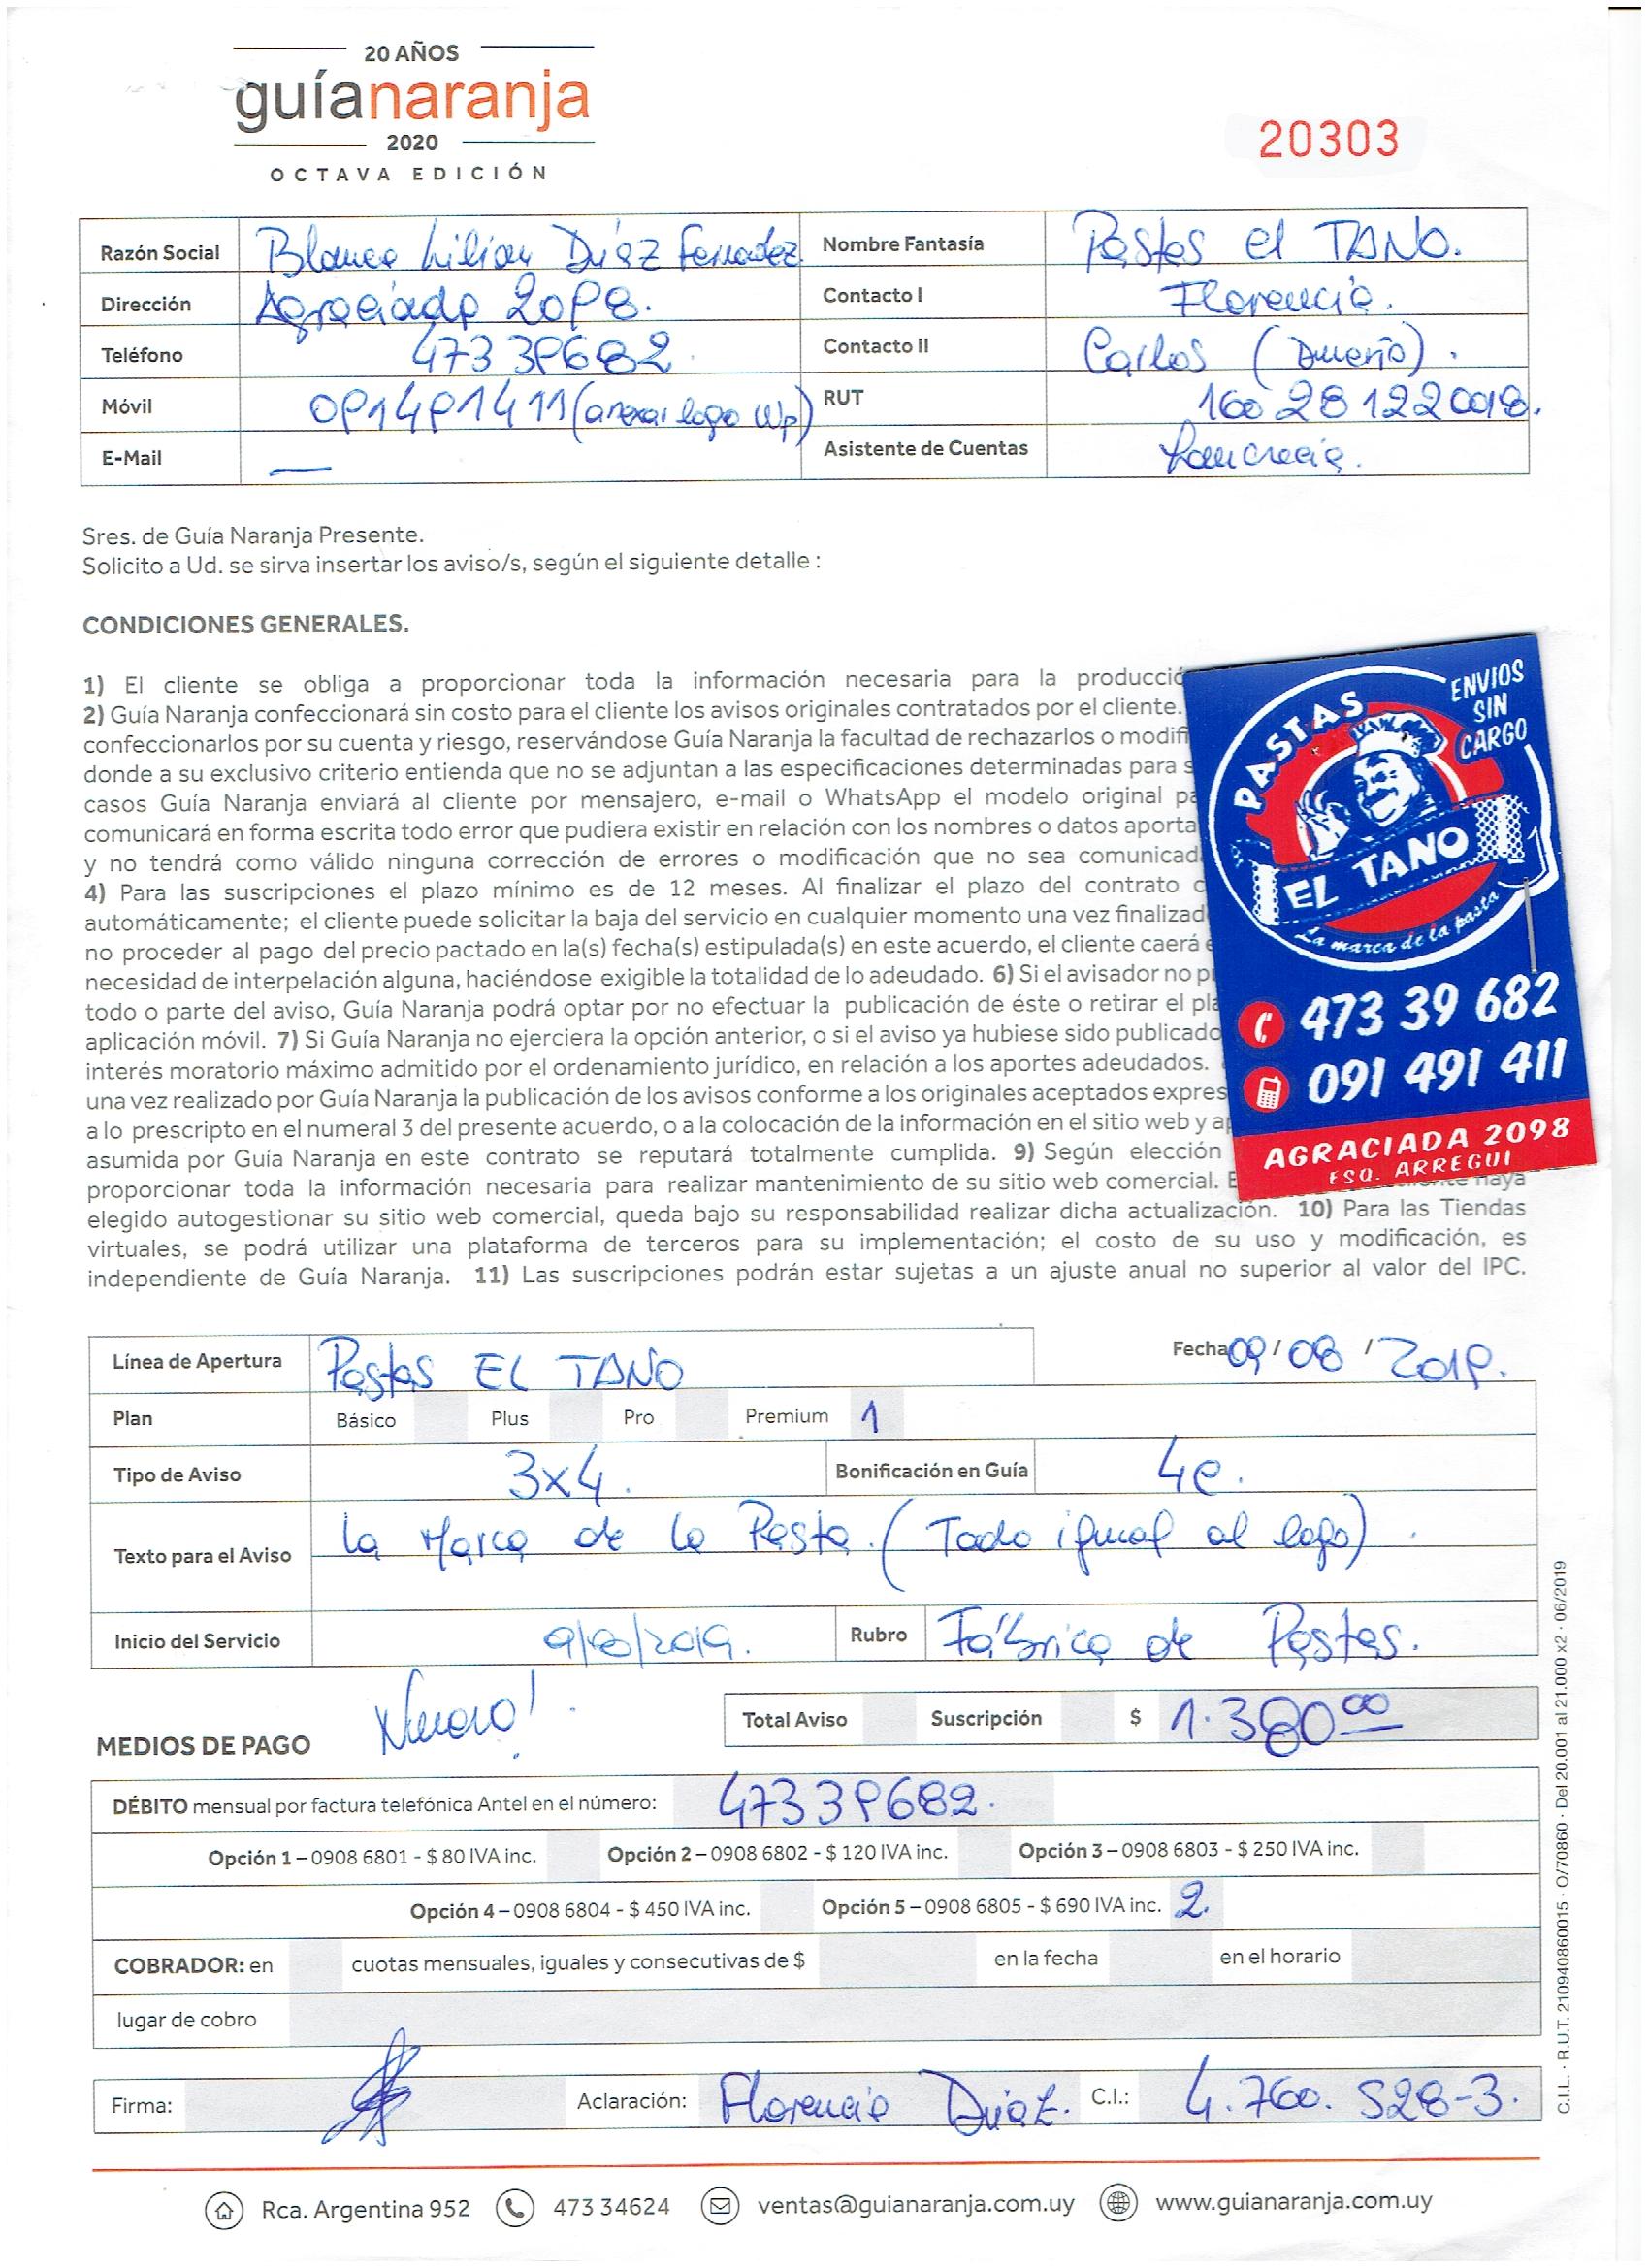 20 AÑOS
guíanaranja
2020
OCTAVA EDICIÓN
20303
Razón Social Blanca Lilian Díaz Fernadez. Nombre Fantasía Pastas el TANO.
Dirección Agraciada 2098. Contacto I Florencia.
Teléfono 473 39682. Contacto II Carlos (Dueño).
Móvil 091491411 (anexar logo Wp) RUT 160281220018.
E-Mail — Asistente de Cuentas
Sres. de Guía Naranja Presente.
Solicito a Ud. se sirva insertar los aviso/s, según el siguiente detalle :
CONDICIONES GENERALES.
1) El cliente se obliga a proporcionar toda la información necesaria para la producció
2) Guía Naranja confeccionará sin costo para el cliente los avisos originales contratados por el cliente.
confeccionarlos por su cuenta y riesgo, reservándose Guía Naranja la facultad de rechazarlos o modifi
donde a su exclusivo criterio entienda que no se adjuntan a las especificaciones determinadas para s
casos Guía Naranja enviará al cliente por mensajero, e-mail o WhatsApp el modelo original pa
comunicará en forma escrita todo error que pudiera existir en relación con los nombres o datos aporta
y no tendrá como válido ninguna corrección de errores o modificación que no sea comunicad
4) Para las suscripciones el plazo mínimo es de 12 meses. Al finalizar el plazo del contrato c
automáticamente; el cliente puede solicitar la baja del servicio en cualquier momento una vez finalizad
no proceder al pago del precio pactado en la(s) fecha(s) estipulada(s) en este acuerdo, el cliente caerá e
necesidad de interpelación alguna, haciéndose exigible la totalidad de lo adeudado. 6) Si el avisador no p
todo o parte del aviso, Guía Naranja podrá optar por no efectuar la publicación de éste o retirar el pla
aplicación móvil. 7) Si Guía Naranja no ejerciera la opción anterior, o si el aviso ya hubiese sido publicado
interés moratorio máximo admitido por el ordenamiento jurídico, en relación a los aportes adeudados.
una vez realizado por Guía Naranja la publicación de los avisos conforme a los originales aceptados expres
a lo prescripto en el numeral 3 del presente acuerdo, o a la colocación de la información en el sitio web y ap
asumida por Guía Naranja en este contrato se reputará totalmente cumplida. 9) Según elección
proporcionar toda la información necesaria para realizar mantenimiento de su sitio web comercial. E haya
elegido autogestionar su sitio web comercial, queda bajo su responsabilidad realizar dicha actualización. 10) Para las Tiendas
virtuales, se podrá utilizar una plataforma de terceros para su implementación; el costo de su uso y modificación, es
independiente de Guía Naranja. 11) Las suscripciones podrán estar sujetas a un ajuste anual no superior al valor del IPC.
PASTAS
ENVIOS
SIN
CARGO
EL TANO
La marca de la pasta
473 39 682
091 491 411
AGRACIADA 2098
ESQ. ARREGUI
Línea de Apertura Pastas EL TANO Fecha 09/08/2019.
Plan Básico Plus Pro Premium 1
Tipo de Aviso 3x4. Bonificación en Guía 4c.
Texto para el Aviso La Marca de la Pasta. (Todo igual al logo).
Inicio del Servicio 9/8/2019. Rubro Fábrica de Pastas.
Nuevo!
Total Aviso Suscripción $ 1.380 00
MEDIOS DE PAGO
DÉBITO mensual por factura telefónica Antel en el número: 47339682.
Opción 1 – 0908 6801 - $ 80 IVA inc. Opción 2 – 0908 6802 - $ 120 IVA inc. Opción 3 – 0908 6803 - $ 250 IVA inc.
Opción 4 – 0908 6804 - $ 450 IVA inc. Opción 5 – 0908 6805 - $ 690 IVA inc. 2.
COBRADOR: en cuotas mensuales, iguales y consecutivas de $ en la fecha en el horario
lugar de cobro
Firma: Aclaración: Florencia Díaz. C.I.: 4.760.528-3.
C.I.L. · R.U.T. 210940860015 · O/70860 · Del 20.001 al 21.000 x2 · 06/2019
Rca. Argentina 952 473 34624 ventas@guianaranja.com.uy www.guianaranja.com.uy